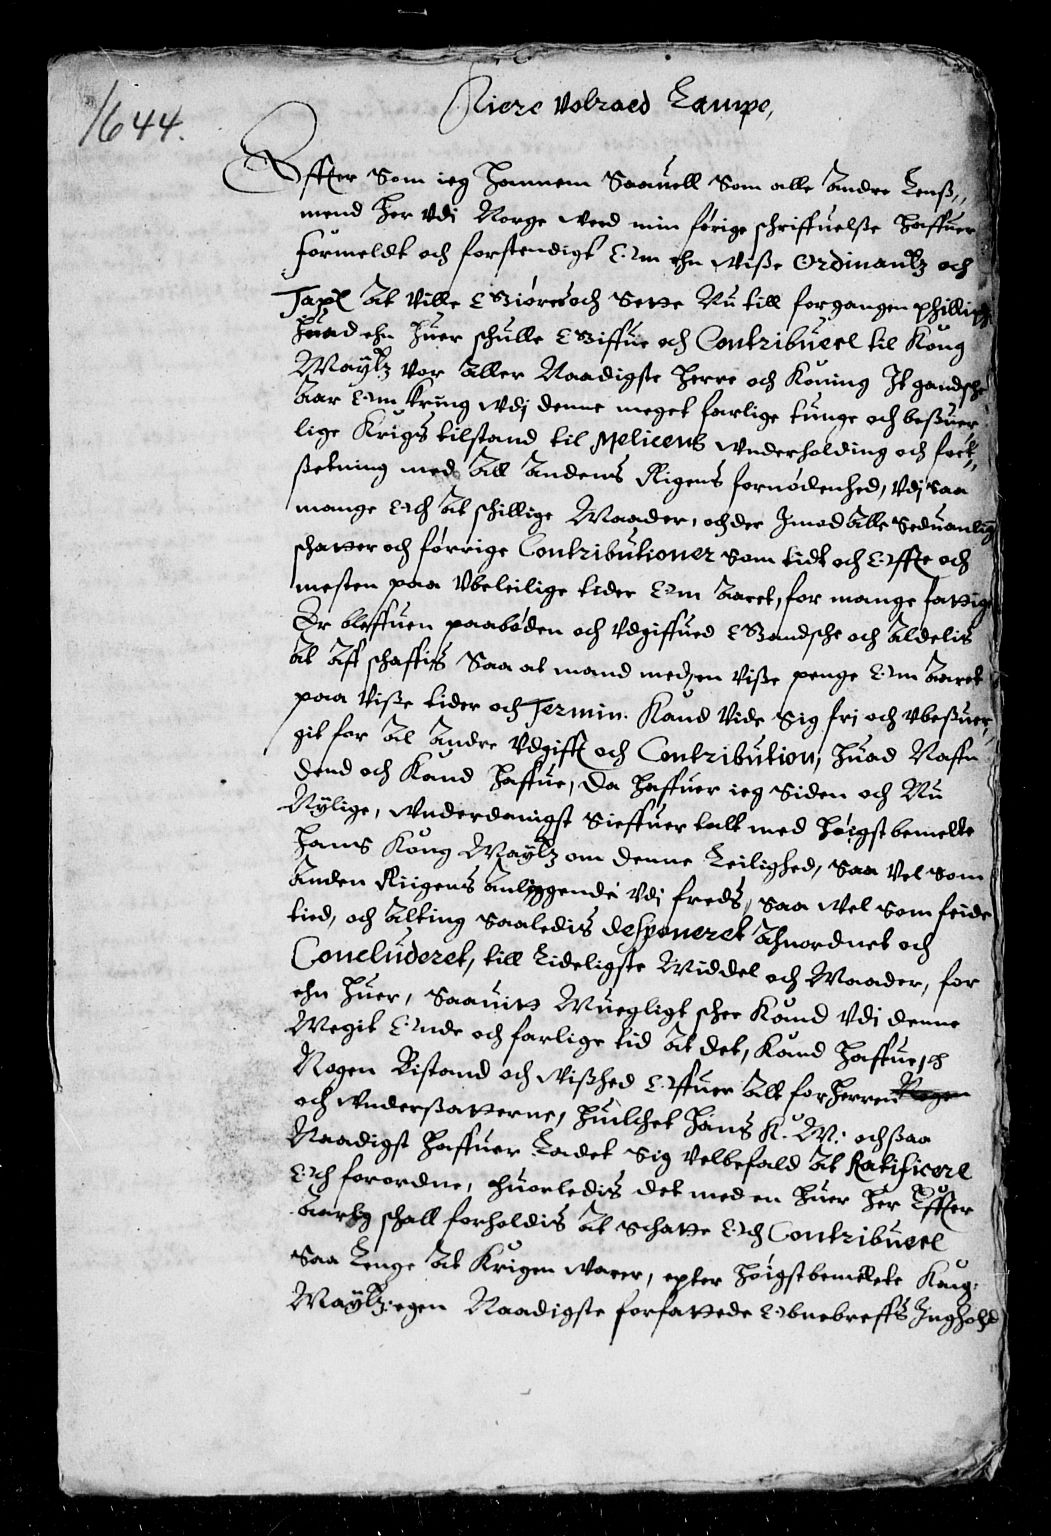 1644.
Kiere Volraed Lampe,
Effter Som ieg hannem Saauell Som alle Andre Lenß,,
mend her Vdj Norge wed min förige schriffuelße haffuer
formeldt och forstendigt Om ehn wiße Ordinantz och
Taxt At ville Giöres och Sette Nu till forgangen phillipj
huad ehn huer schulle Giffue och Contribuere til Kong
Maytz vor Aller Naadigste herre och Koning It gandsche
Aar Om kring wdj denne meget farlige tunge och beßuer
lige Krigs tilstand til Melicens wnderholding och fort
ßetning med All Andens Rigens fornödenhed, Vdj Saa
mange Och At schillige Maader, och der Imod Alle Seduanlig
schatter och förrige Contributioner Som tidt och Offte och
mesten paa Vbeleilige tider Om Aaret, for mange fattige
Er bleffuen paaböden och Vdgiffued Gandsche och Aldelis
At Aff schaffis Saa at mand med en Viße penge Om Aaret
paa Viße tider och Termin. Kand Vide Sig frj och Vbeßuer,,
git for Al Andre Vdgifft och Contribution, huad Naffn
dend och Kand haffue, Da haffuer ieg Siden och Nu
Nÿlige, wnderdanigst Sieffuer talt med höigst bemelte
hans Kong Maytz om denne Leilighed, Saa Vel Som
Anden Riigens Anliggende Vdj freds, Saa wel Som feide
tied, och Alting Saaledis desponeret Ahnordnet och
Concluderet, till Lideligste Middel och Maader, for
ehn huer, Saauitt Muegligt schee Kand Vdj denne
Megit Onde och farlige tid At det, Kand haffue
Nogen Bistand och Wißhed Offuer Alt for herren Nogen
och wnderßatterne, huilchet hans K. M. och ßaa
Naadigst haffuer Ladet Sig Velbefald At Ratificere
Och forordne, huorledis det med en huer her Effter
Aarlig schall forholdis At Schatte Och Contribuere
Saa Lenge At Krigen warer, epter höigstbemelete Kong:
Maytz: egen Naadigste forfattede Obnebreffs Inghold